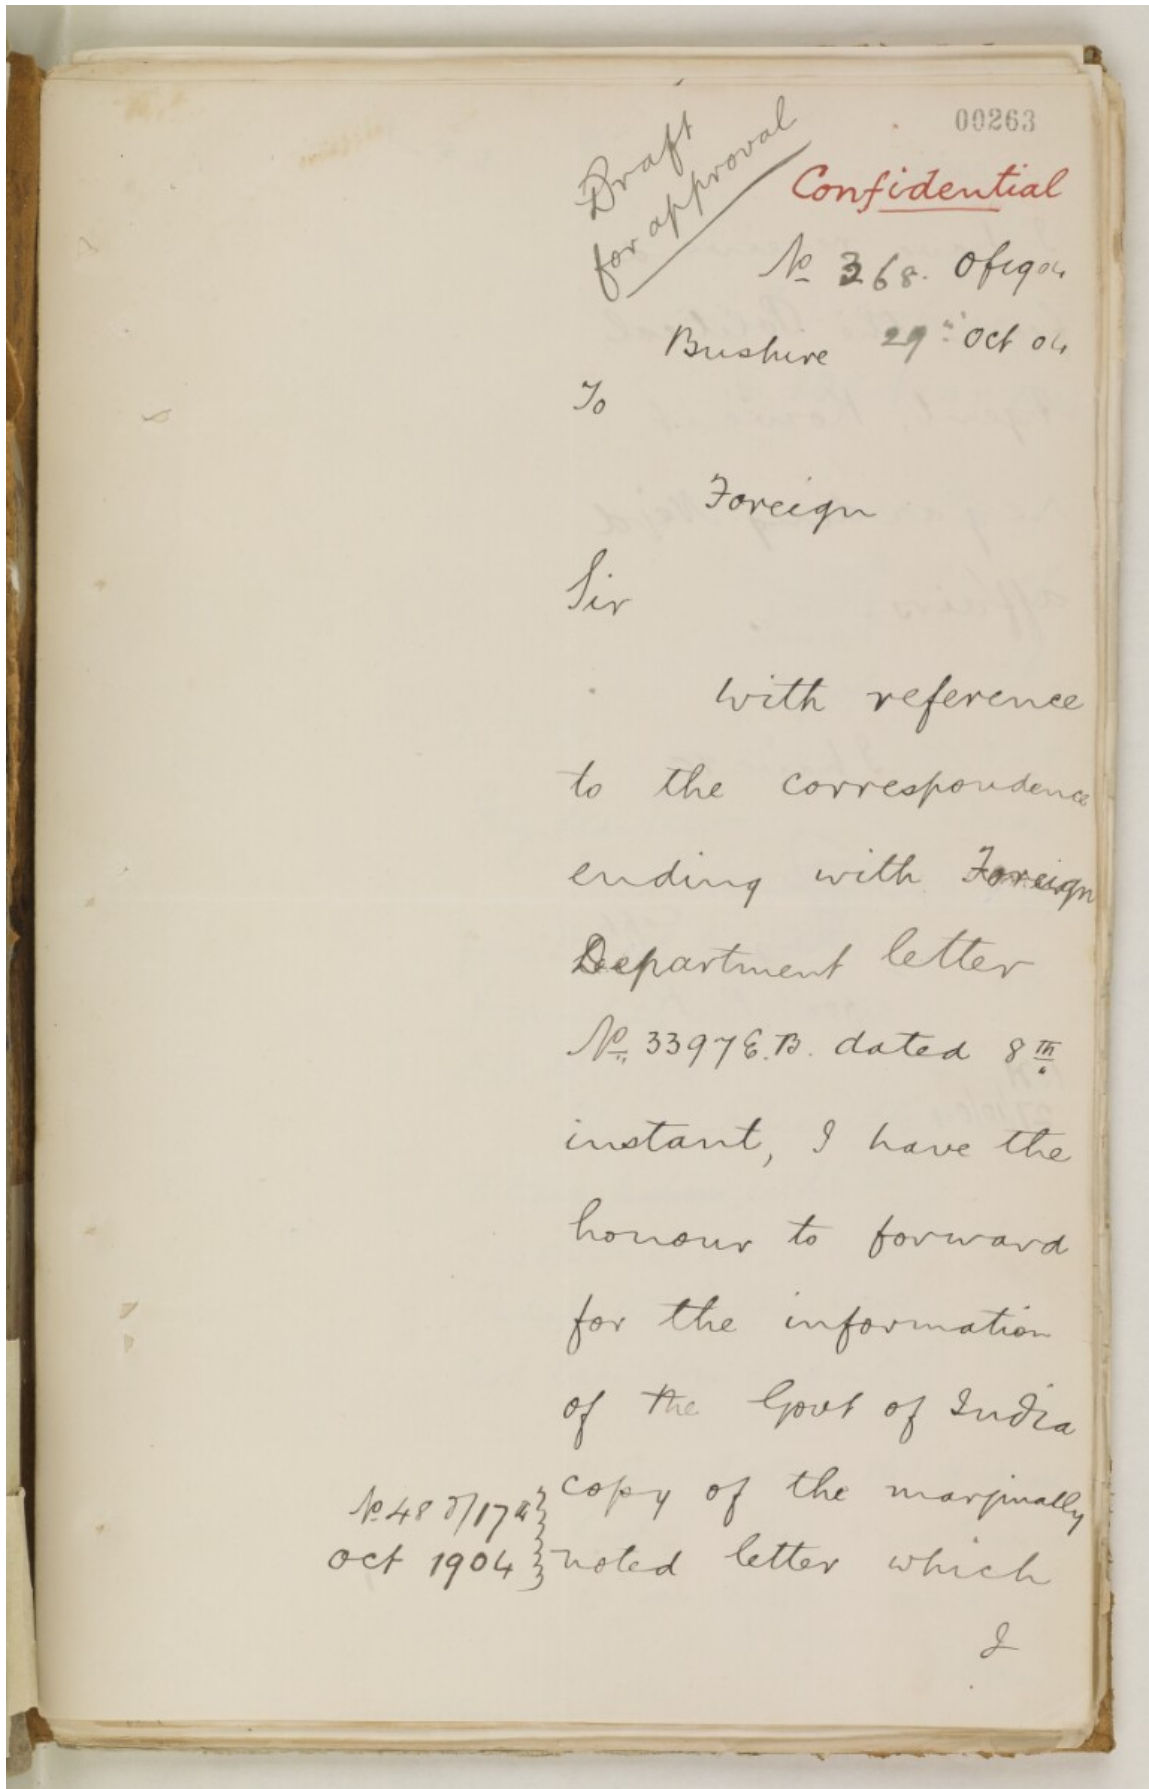 00263
Draft
for approval
Confidential
No 368. Of 1904
Bushire 29th Oct 04
To
Foreign
Sir
With reference
to the correspondence
ending with Foreign
Department letter
No. 3397 E.B. dated 8th
instant, I have the
honour to forward
for the information
of the Govt of India
copy of the marginally
No 48 d/17th
Oct 1904
noted letter which
I